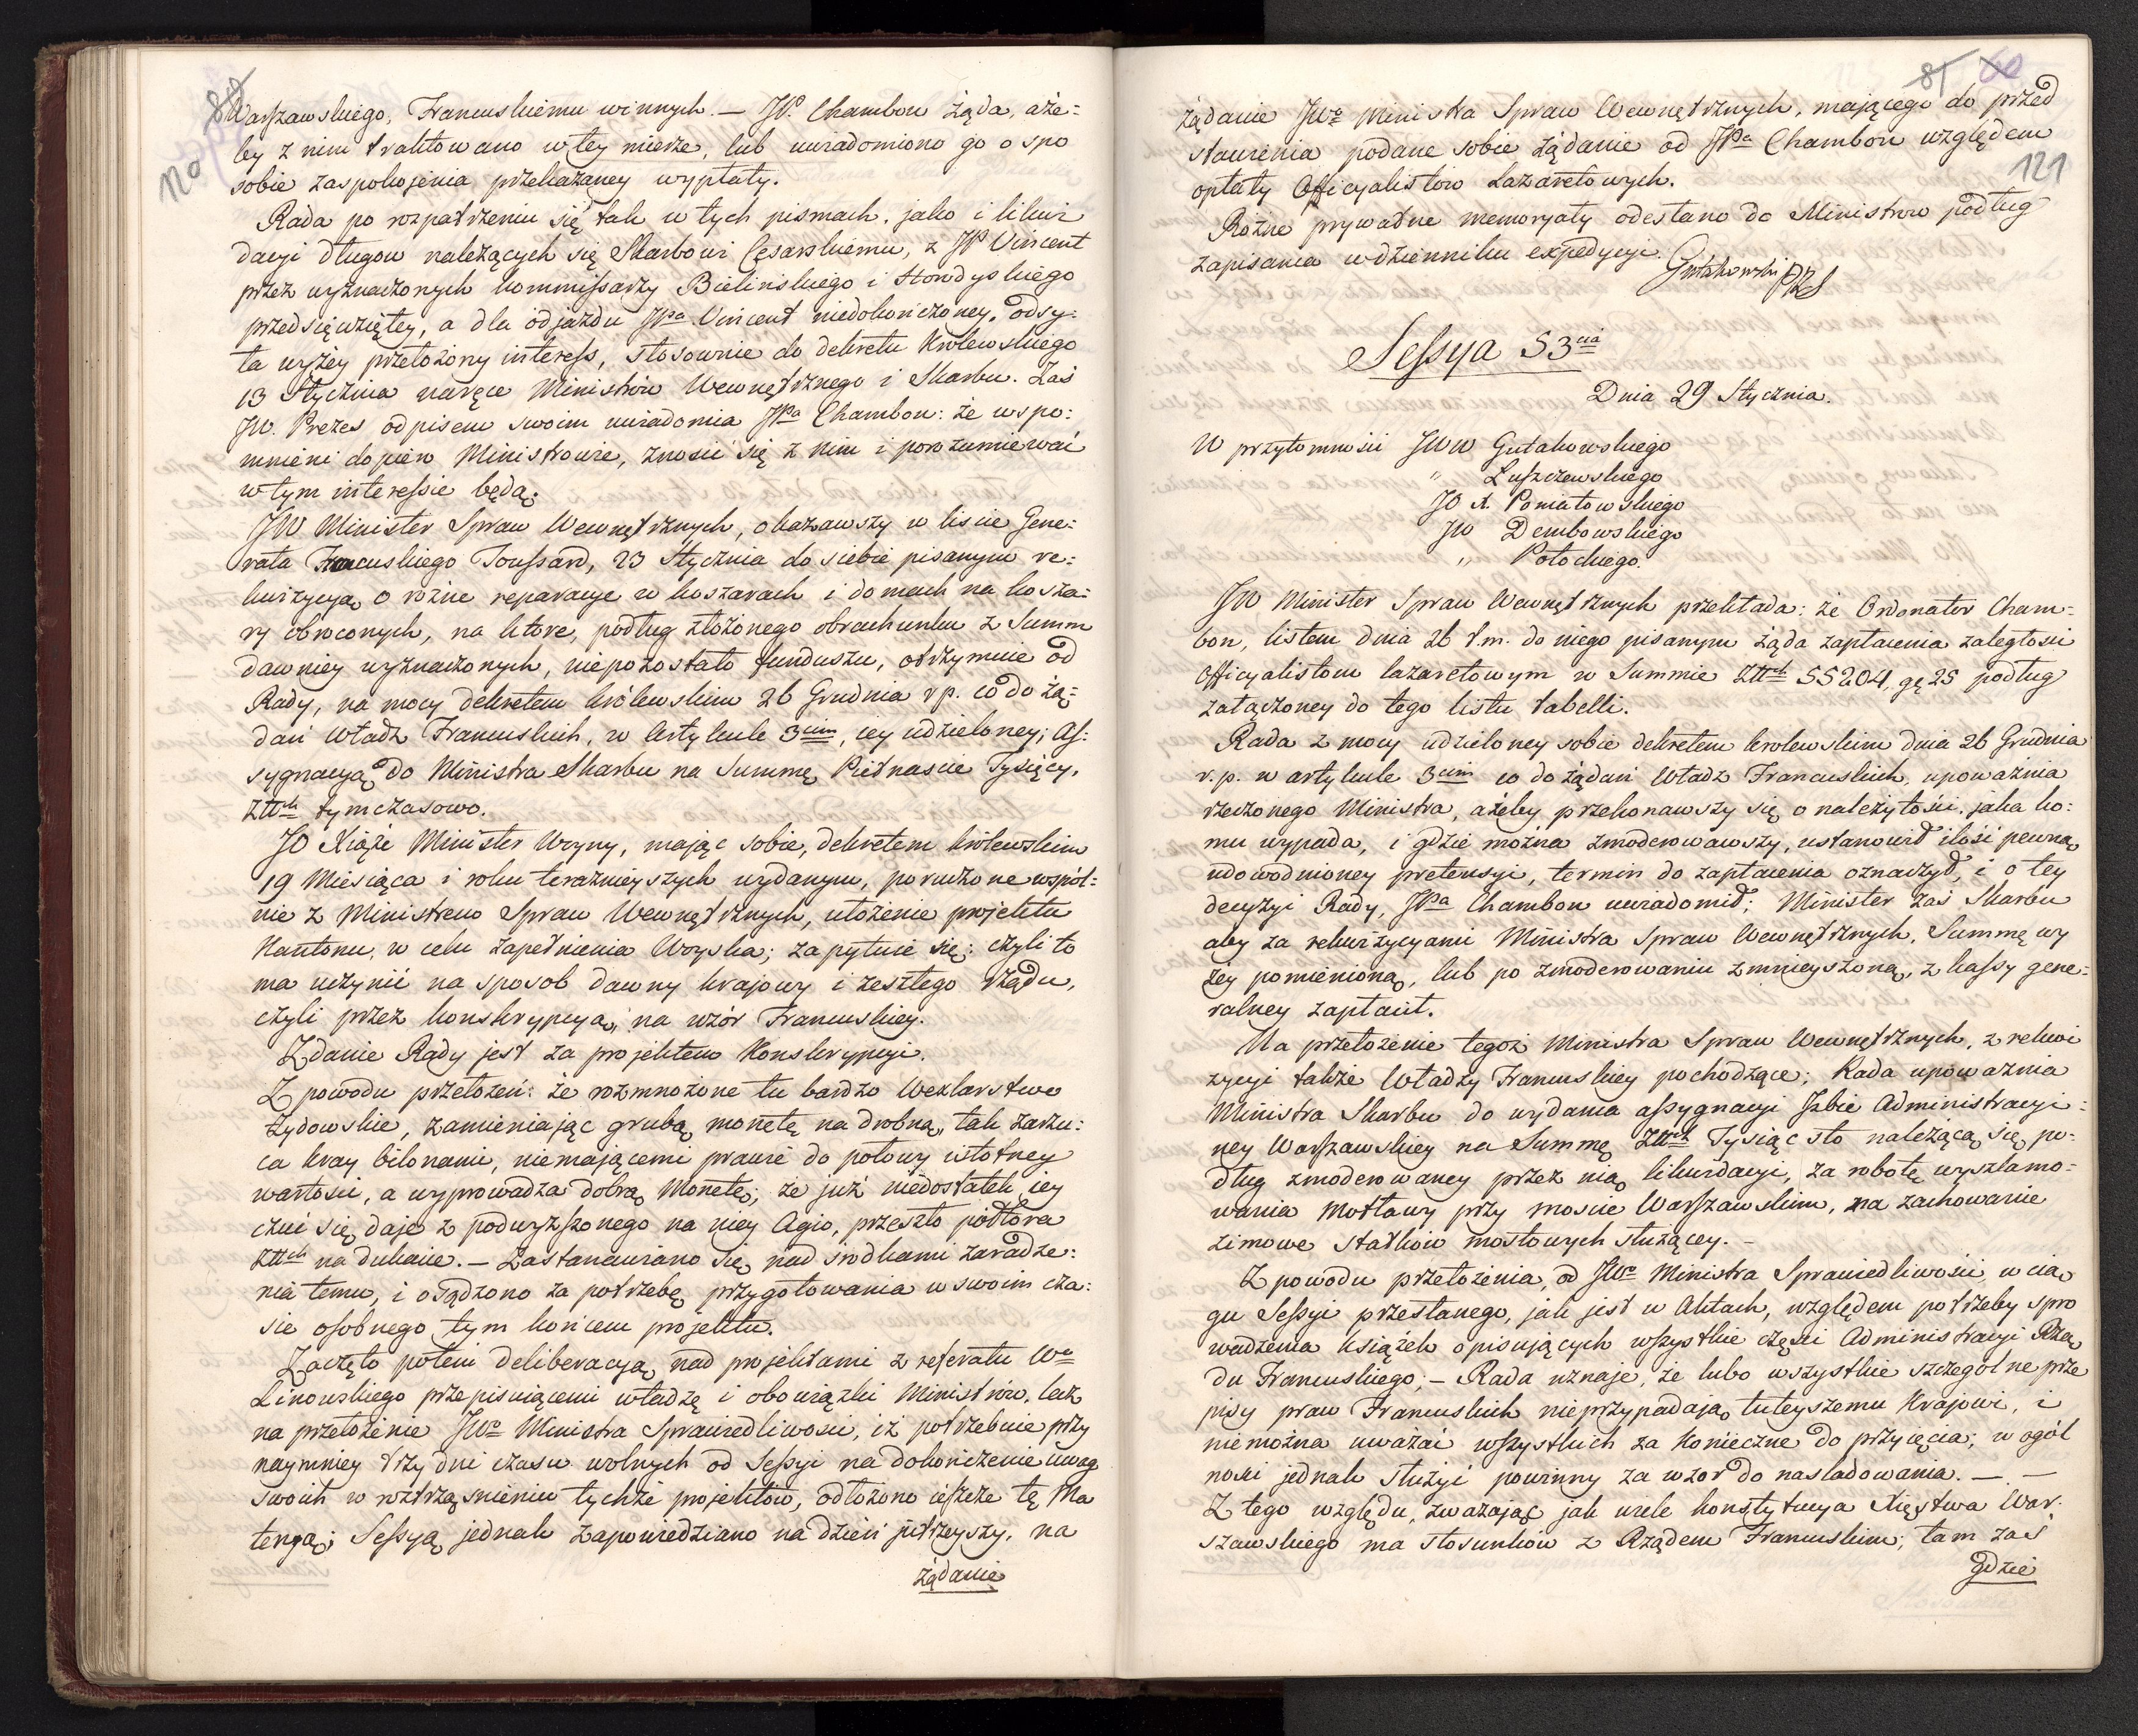 80
120
Warszawskiego, Francuskiemu winnych. — JP. Chambon żąda, aże=
by z nim traktowano w tey mierze, lub uwiadomiono go o spo
sobie zaspokojenia przekazaney wypłaty.
Rada po rozpatrzeniu się tak w tych pismach, jako i likwi
dacyi długow należących się Skarbowi Cesarskiemu, z JP Vincent
przez wyznaczonych kommissarzy Bielińskiego i Hondyskiego
przedsięwziętey, a dla odjazdu JPa Vincent niedokończoney, odsy=
ła wyżey przełożony interess, stosownie do dekretu Krolewskiego
13 Stycznia naręce Ministrów Wewnętrznego i Skarbu. Zaś
JW. Prezes odpisem swoim uwiadomia JPa Chambon: że wspo=
mnieni dopiero Ministrowie, znosić się z nim i porozumiewać
w tym interessie będą.
JW Minister Spraw Wewnętrznych, okazawszy w liście Gene=
rała Francuskiego Toussard, 23 Stycznia do siebie pisanym re=
kwizycyą o różne reparacye w koszarach i domach na kosza=
ry obroconych, na ktore, podług złożonego obrachunku z Summ
dawniey wyznaczonych, niepozostało funduszu, otrzymuie od
Rady, na mocy dekretem królewskim 26 Grudnia r p. co do żą=
dań Władz Francuskich, w Artykule 3cim, iey udzieloney; As=
sygnacyą do Ministra Skarbu na Summę Piętnaście Tysięcy,
Złtch tymczasowo.
JO Xiąże Minister Woyny, mając sobie, dekretem królewskim
19 Miesiąca i roku teraźnieyszych wydanym, poruczone wspól=
nie z Ministrem Spraw Wewnętrznych, ułożenie projektu
Kantonu, w celu zapełnienia Woyska; zapytuie się: czyli to
ma uczynić na sposob dawny krajowy i zeszłego rządu,
czyli przez konskrypcyą, na wzór Francuskiey.
Zdanie Rady jest za projektem Konskrypcyi.
Z powodu przełożeń: że rozmnożone tu bardzo Wexlarstwo
żydowskie, zamieniając grubą monetę na drobną, tak zarzu=
ca kray bilonami, niemającemi prawie do połowy istotney
wartości, a wyprowadza dobrą Monetę; że już niedostatek iey
czuć się daje z podwyższonego na niey Agio, przeszło półtora
Złtch na dukacie. — Zastanawiano się nad srodkami zaradze=
nia temu, i osądzono za potrzebę przygotowania w swoim cza=
sie osobnego tym końcem projektu.
Zaczęto potem deliberacyą nad projektami z referatu We
Linowskiego przepisuiącemi władzę i obowiązki Ministrów, lecz
na przełożenie JWe Ministra Sprawiedliwości, iż potrzebuie przy
naymniey trzy dni czasu wolnych od Sessyi na dokończenie uwag
swoich w roztrząśnieniu tychże projektów, odłożono ieszcze tę Ma
teryą; Sessyą jednak zapowiedziano na dzień jutrzeyszy, na
żądanie
81
121
żądanie JWe Ministra Spraw Wewnętrznych, mającego do przed
stawienia podane sobie żądanie od JPa Chambon względem
opłaty Officyalistow Lazaretowych.
Rożne prywatne memoryały odesłano do Ministrow podług
zapisania w dzienniku expedycyi. Gutakowski PRS
Sessya 53cia
Dnia 29 Stycznia.
W przytomności JWW Gutakowskiego
" Łuszczewskiego
JO X. Poniatowskiego
JW Dembowskiego
" Potockiego.
JW Minister Spraw Wewnętrznych przekłada: że Ordonator Cham=
bon, listem dnia 26 t.m. do niego pisanym żąda zapłacenia zaległości
Officyalistom lazaretowym w Summie Złtch 55204, gę 25 podług
załączoney do tego listu tabelli.
Rada z mocy udzieloney sobie dekretem krolewskim dnia 26 Grudnia
r. p. w artykule 3cim co do żądań Władz Francuskich, upoważnia
rzeczonego Ministra, ażeby przekonawszy się o należytości, jaka ko=
mu wypada, i gdzie można zmoderowawszy, ustanowił ilość pewną
udowodnioney pretensyi, termin do zapłacenia oznaczył, i o tey
decyzyi Rady, JPa Chambon uwiadomił; Minister zaś Skarbu
aby za rekwizycyami Ministra Spraw Wewnętrznych, Summę wy
żey pomienioną, lub po zmoderowaniu zmnieyszoną, z kassy gene=
ralney zapłacił.
Na przełożenie tegoż Ministra Spraw Wewnętrznych, z rekwi
zycyi także Władzy Francuskiey pochodzące; Rada upoważnia
Ministra Skarbu do wydania assygnacyi Izbie Administracyi=
ney Warszawskiey na Summę Złtch Tysiąc sto należącą się po=
dług zmoderowaney przez nią likwidacyi, za robotę wyszlamo=
wania Motławy przy moście Warszawskim, na zachowanie
zimowe statków mostowych służącey. —
Z powodu przełożenia, od JWe Ministra Sprawiedliwości w cią
gu Sessyi przesłanego, jak jest w Aktach, względem potrzeby spro
wadzenia książek opisujących wszystkie części Administracyi Rzą
du Francuskiego; — Rada uznaje, że lubo wszystkie szczegolne prze
pisy praw Francuskich nieprzypadają tuteyszemu Krajowi, i
niemożna uważać wszystkich za konieczne do przyięcia; w ogól
ności jednak służyć powinny za wzor do nasladowania. — —
Z tego względu, zważając jak wiele konstytucya Xięstwa War=
szawskiego ma stosunków z Rządem Francuskim; tam zaś
gdzie